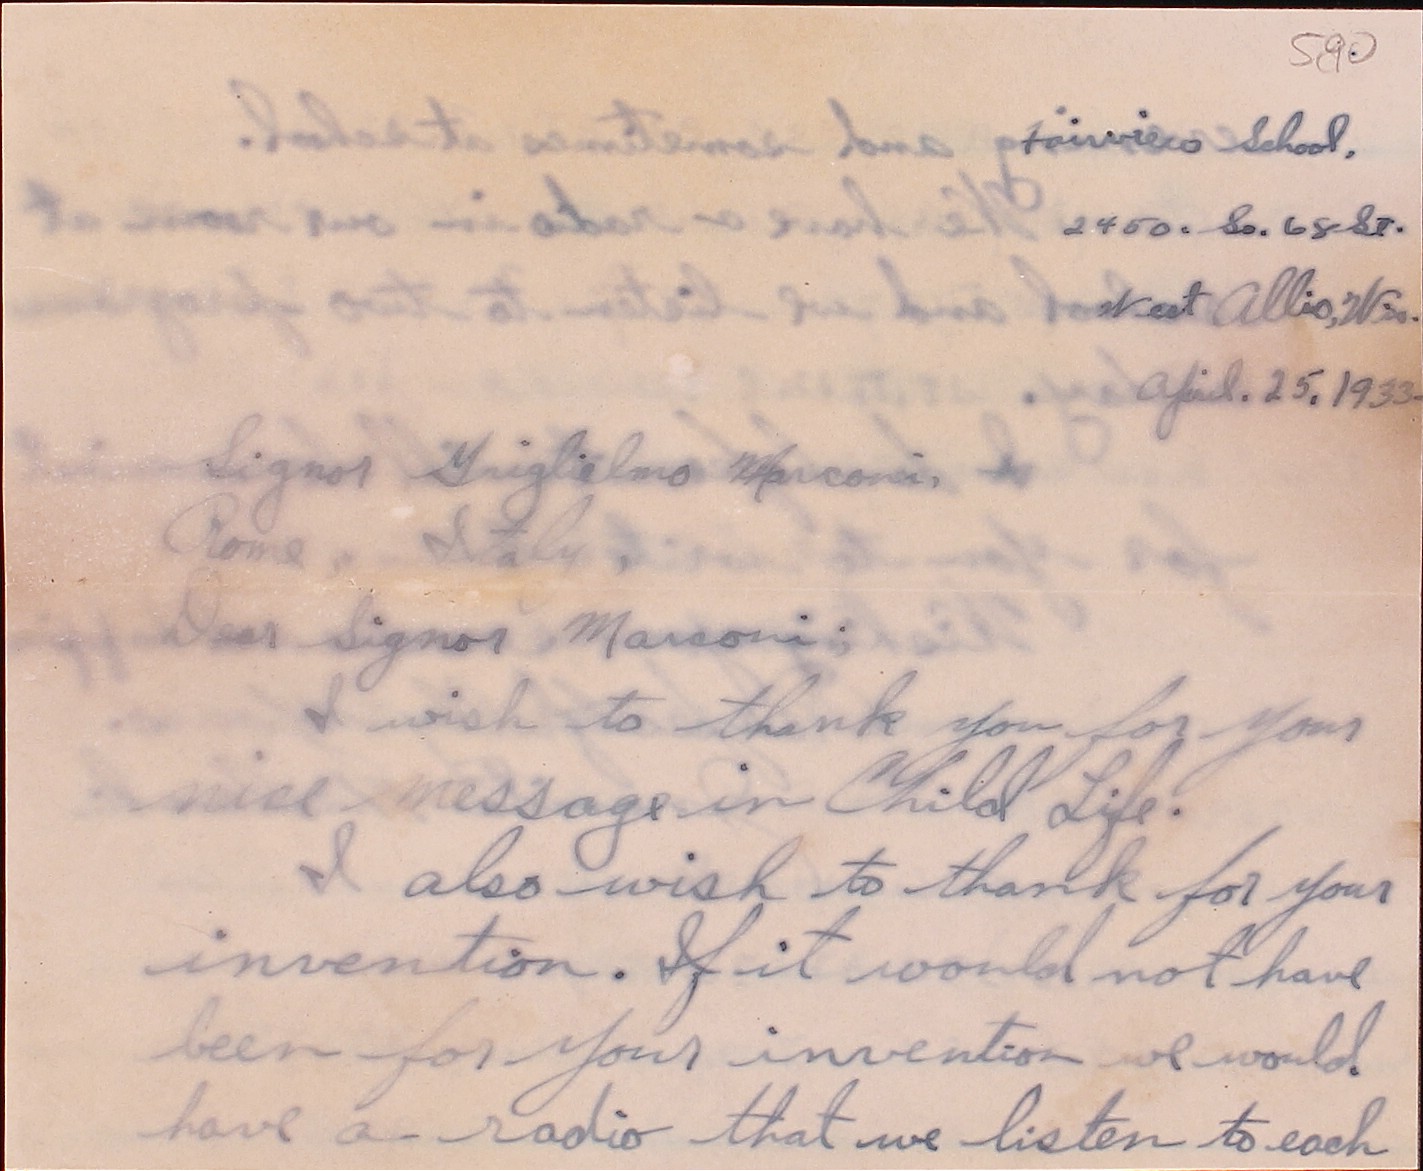 590
Fairview School,
2450. So. 68 St.
West Allis, Wis.
April. 25. 1933
Signor Griglielmo Marconi,
Rome, Italy,
Dear Signor Marconi;
I wish to thank you for your
nice message in Child Life.
I also wish to thank for your
invention. If it would not have
been for your invention we would
have a radio that we listen to each